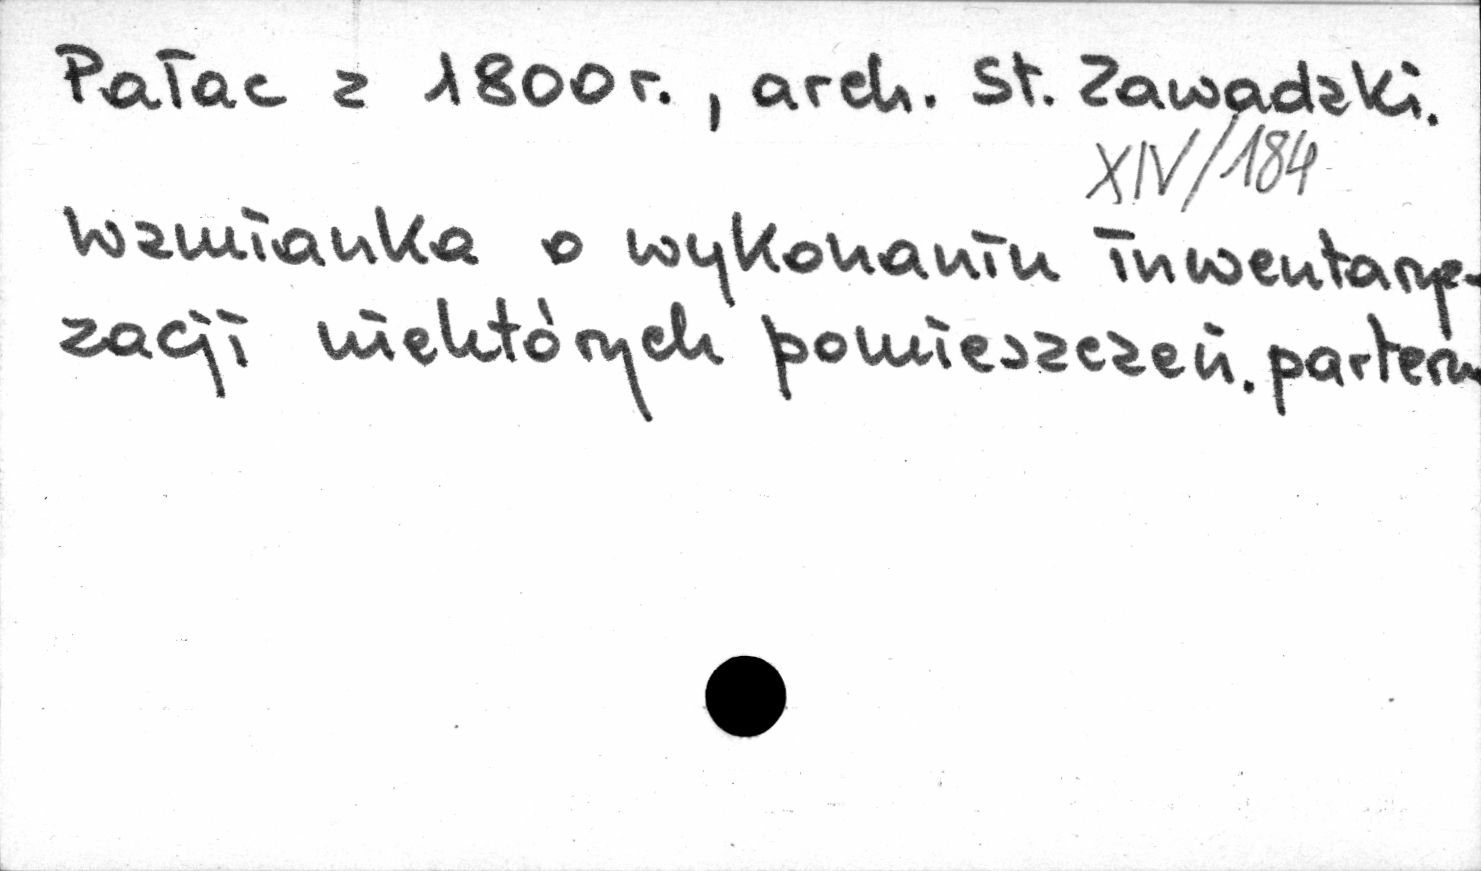 Pałac z 1800 r., arch. St. Zawadzki.
XIV/184
Wzmianka o wykonaniu inwentary-
zacji niektórych pomieszczeń. parteru